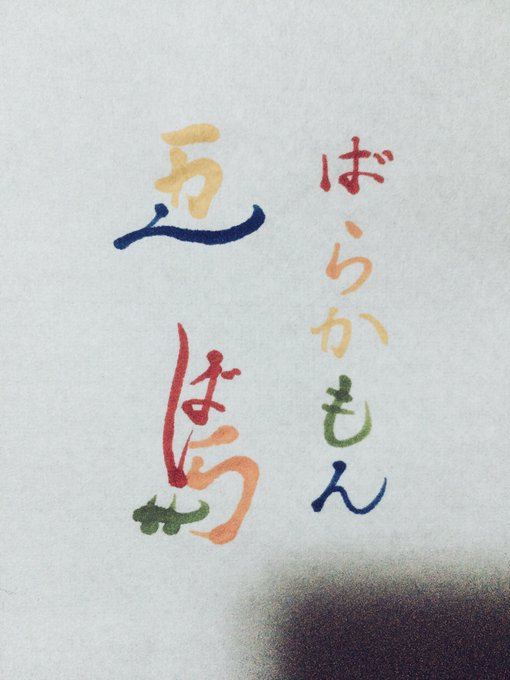 ばらかもん
五島